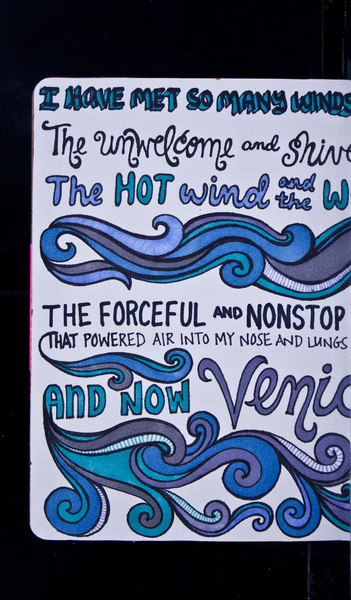 I HAVE MET SO MANY WINDS
The unwelcome and
The HOT wind and the
THE FORCEFUL AND NONSTOP
THAT POWERED AIR INTO MY NOSE AND LUNGS
AND NOW